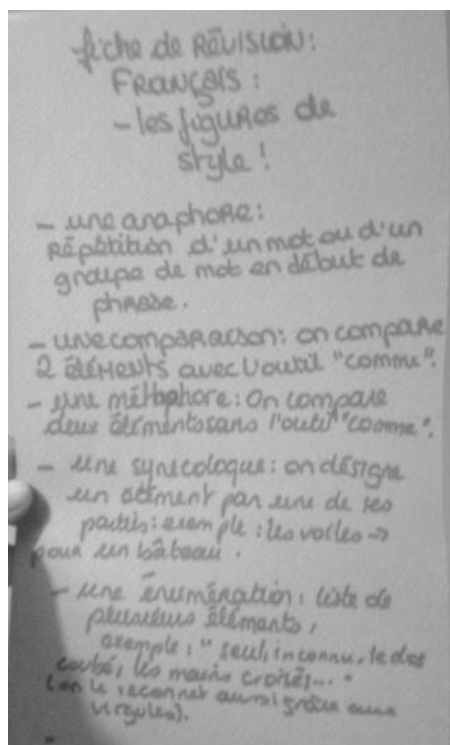 fiche de RÉVISION:
FRANÇAIS:
- les figures de
style!
- une anaphore:
Répétition d'un mot ou d'un
groupe de mot en début de
phrase.
- une comparaison: on compare
2 éléments avec l'outil "comme".
- une métaphore: On compare
deux éléments sans l'outil "comme".
- une synecdoque: on désigne
un élément par une de ses
parties: exemple: les voiles ->
pour un bâteau.
- une énumération: liste de
plusieurs éléments,
exemple: "seul, inconnu, le dos
courbé, les mains croisés..."
(on le reconnet aussi grâce aux
virgules).